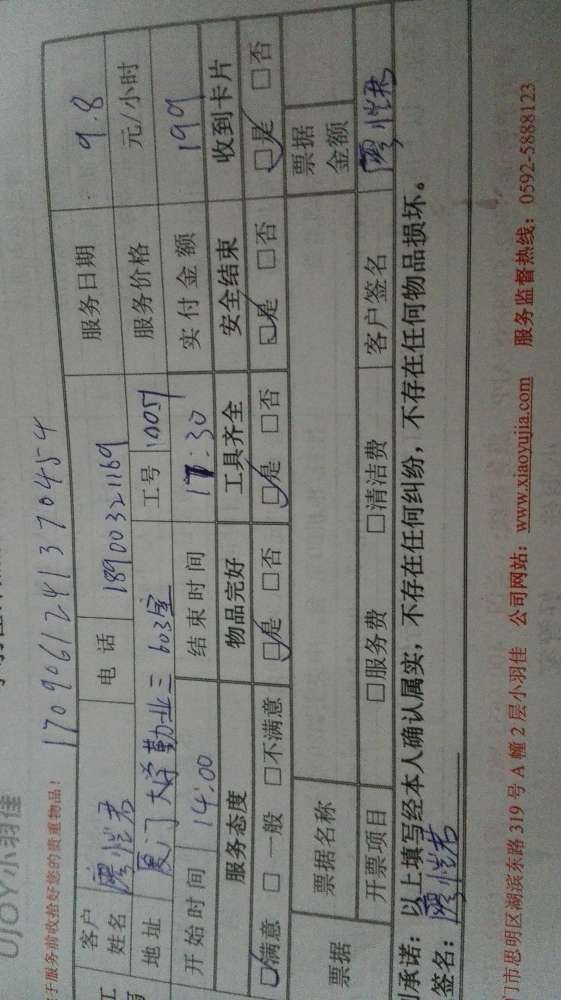 UJOY小羽佳
于服务前收拾好您的贵重物品！ 170906124137 0454
客户姓名 廖恺君 电话 18900321169 服务日期 9.8
地址 厦门大学勤业三 603室 工号 服务价格 元/小时
开始时间 14:00 结束时间 17:30 实付金额 199
服务态度 物品完好 工具齐全 安全结束 收到卡片
☑满意 □一般 □不满意 ☑是 □否 ☑是 □否 ☑是 □否 ☑是 □否
票据 票据名称 票据金额
开票项目 □服务费 □清洁费 客户签名 廖恺君
承诺：以上填写经本人确认属实，不存在任何纠纷，不存在任何物品损坏。
签名：廖恺君
门市思明区湖滨东路319号A幢2层小羽佳 公司网站：www.xiaoyujia.com 服务监督热线：0592-5888123